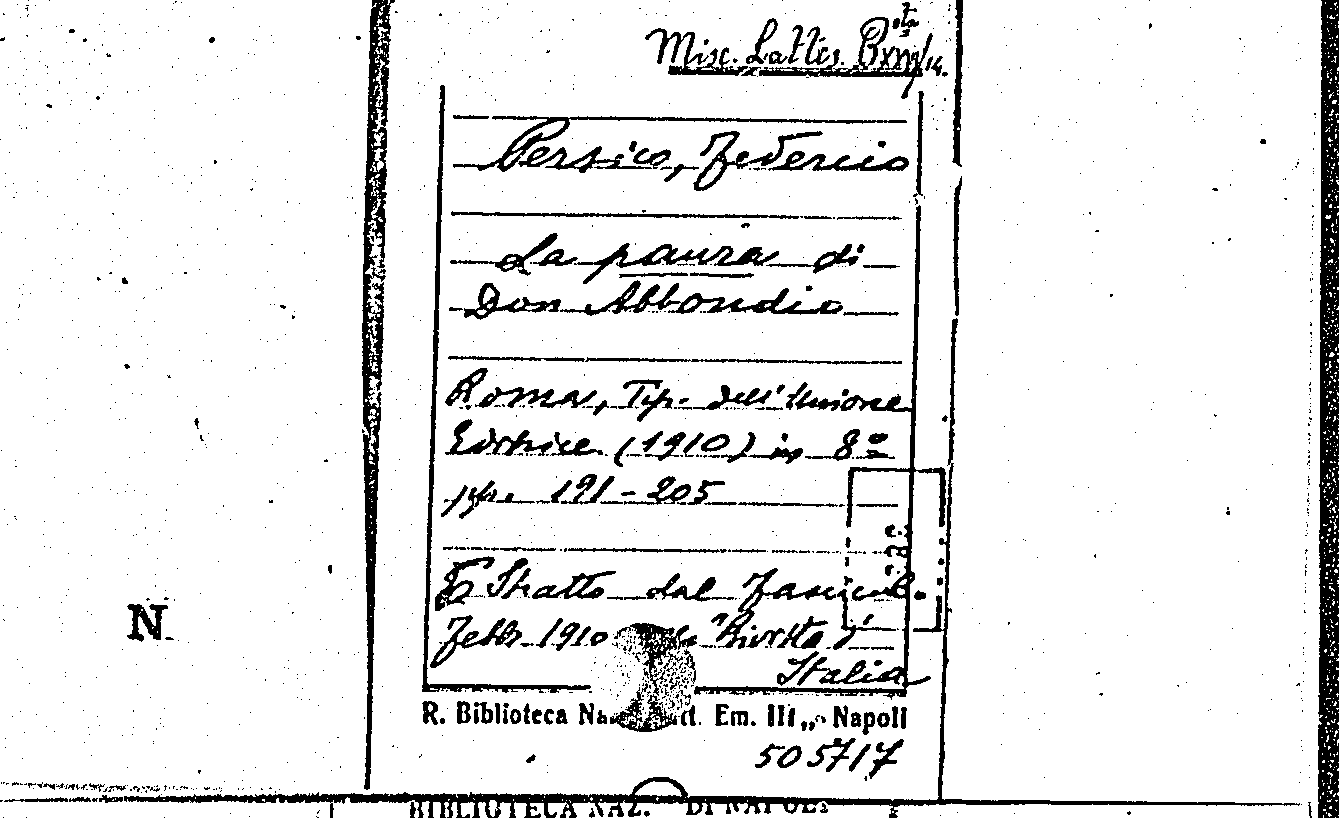 Misc. Lattes. B^sta XXIV/14.
Persico, Federico
La paura di
Don Abbondio
Roma, Tip. dell'Unione
Editrice (1910) in 8º
pp. 191-205
Estratto dal Fascicol.
Febb. 1910 "Rivista d'
Italia
R. Biblioteca Em. III „ Napoli
505717
N
BIBLIOTECA NAZ. DI NAPOLI